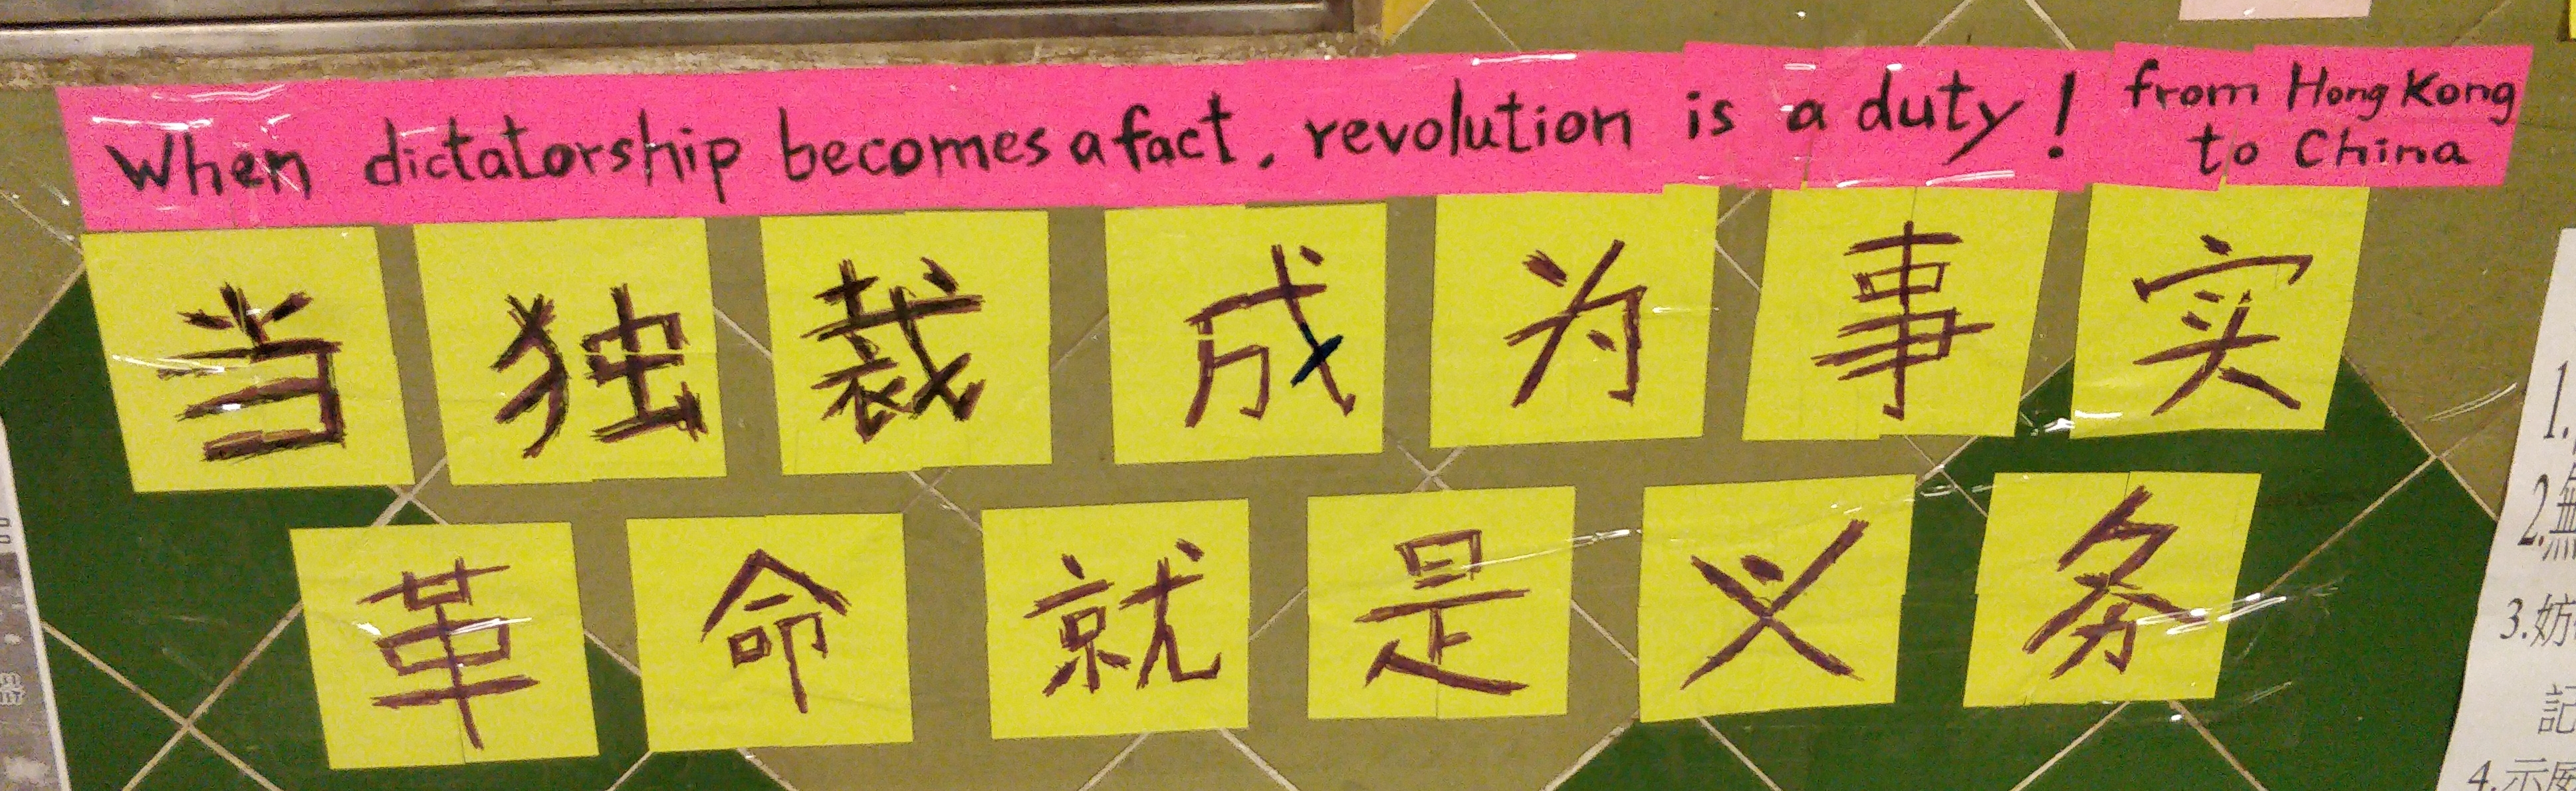 When dictatorship becomes a fact, revolution is a duty! from Hong Kong
to China
当独裁成为事实
革命就是义务
1.
2.無
3.妨
記
4.示威